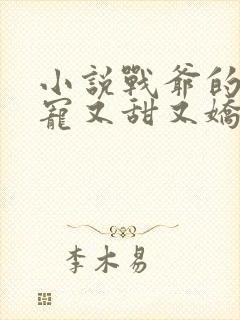 小說戰爺的
寵又甜又嬌
李木易